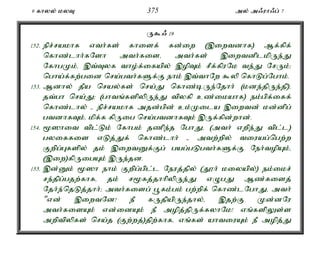 9 காலல் மலவு 375 அல் அஃராஃப் 7
ருகூஃ 19
152. நிச்சயமாக எவர்கள் காளைக் கன்றை (இறைவனாக) ஆக்கிக்
கொண்டார்களோ அவர்களை, அவர்கள் இறைவனிடமிருந்து
கோபமும், இவ்வுலக வாழ்க்கையில் இழிவும் சீக்கிரமே வந்து சேரும்;
பொய்க்கற்பனை செய்பவர்களுக்கு நாம் இவ்வாறே கூலி கொடுப்போம்.
153. ஆனால் தீய செயல்கள் செய்து கொண்டிருந்தோர் (மனந்திருந்தி),
தவ்பா செய்து, (பாவங்களிலிருந்து விலகி உண்மையாக) நம்பிக்கைக்
கொண்டால் - நிச்சயமாக அதன்பின் உம்முடைய இறைவன் மன்னிப்
பவனாகவும், மிக்க கிருபை செய்பவனாகவும் இருக்கின்றான்.
154. மூஸாவை விட்டும் கோபம் தணிந்த போது, (அவர் எறிந்து விட்ட)
பலகைகளை எடுத்துக் கொண்டார் - அவற்றில் வரையப்பெற்ற
குறிப்புகளில் தம் இறைவனுக்குப் பயப்படுபவர்களுக்கு, நேர்வழியும்,
(இறை)கிருபையும் இருந்தன.
155. இன்னும் மூஸா நாம் குறிப்பிட்ட நேரத்தில் (தூர் மலையில்) நம்மைச்
சந்திப்பதற்காக, தம் சமூகத்தாரிலிருந்து எழுபது ஆண்களைத்
தேர்ந்தெடுத்தார்; அவர்களைப் பூகம்பம் பற்றிக் கொண்டபோது, அவர்
"என் இறைவனே! நீ கருதியிருந்தால், இதற்கு முன்னரே
அவர்களையும் என்னையும் நீ அழித்திருக்கலாமே! எங்களிலுள்ள
அறிவிலிகள் செய்த (குற்றத்)திற்காக, எங்கள் யாவரையும் நீ அழித்து